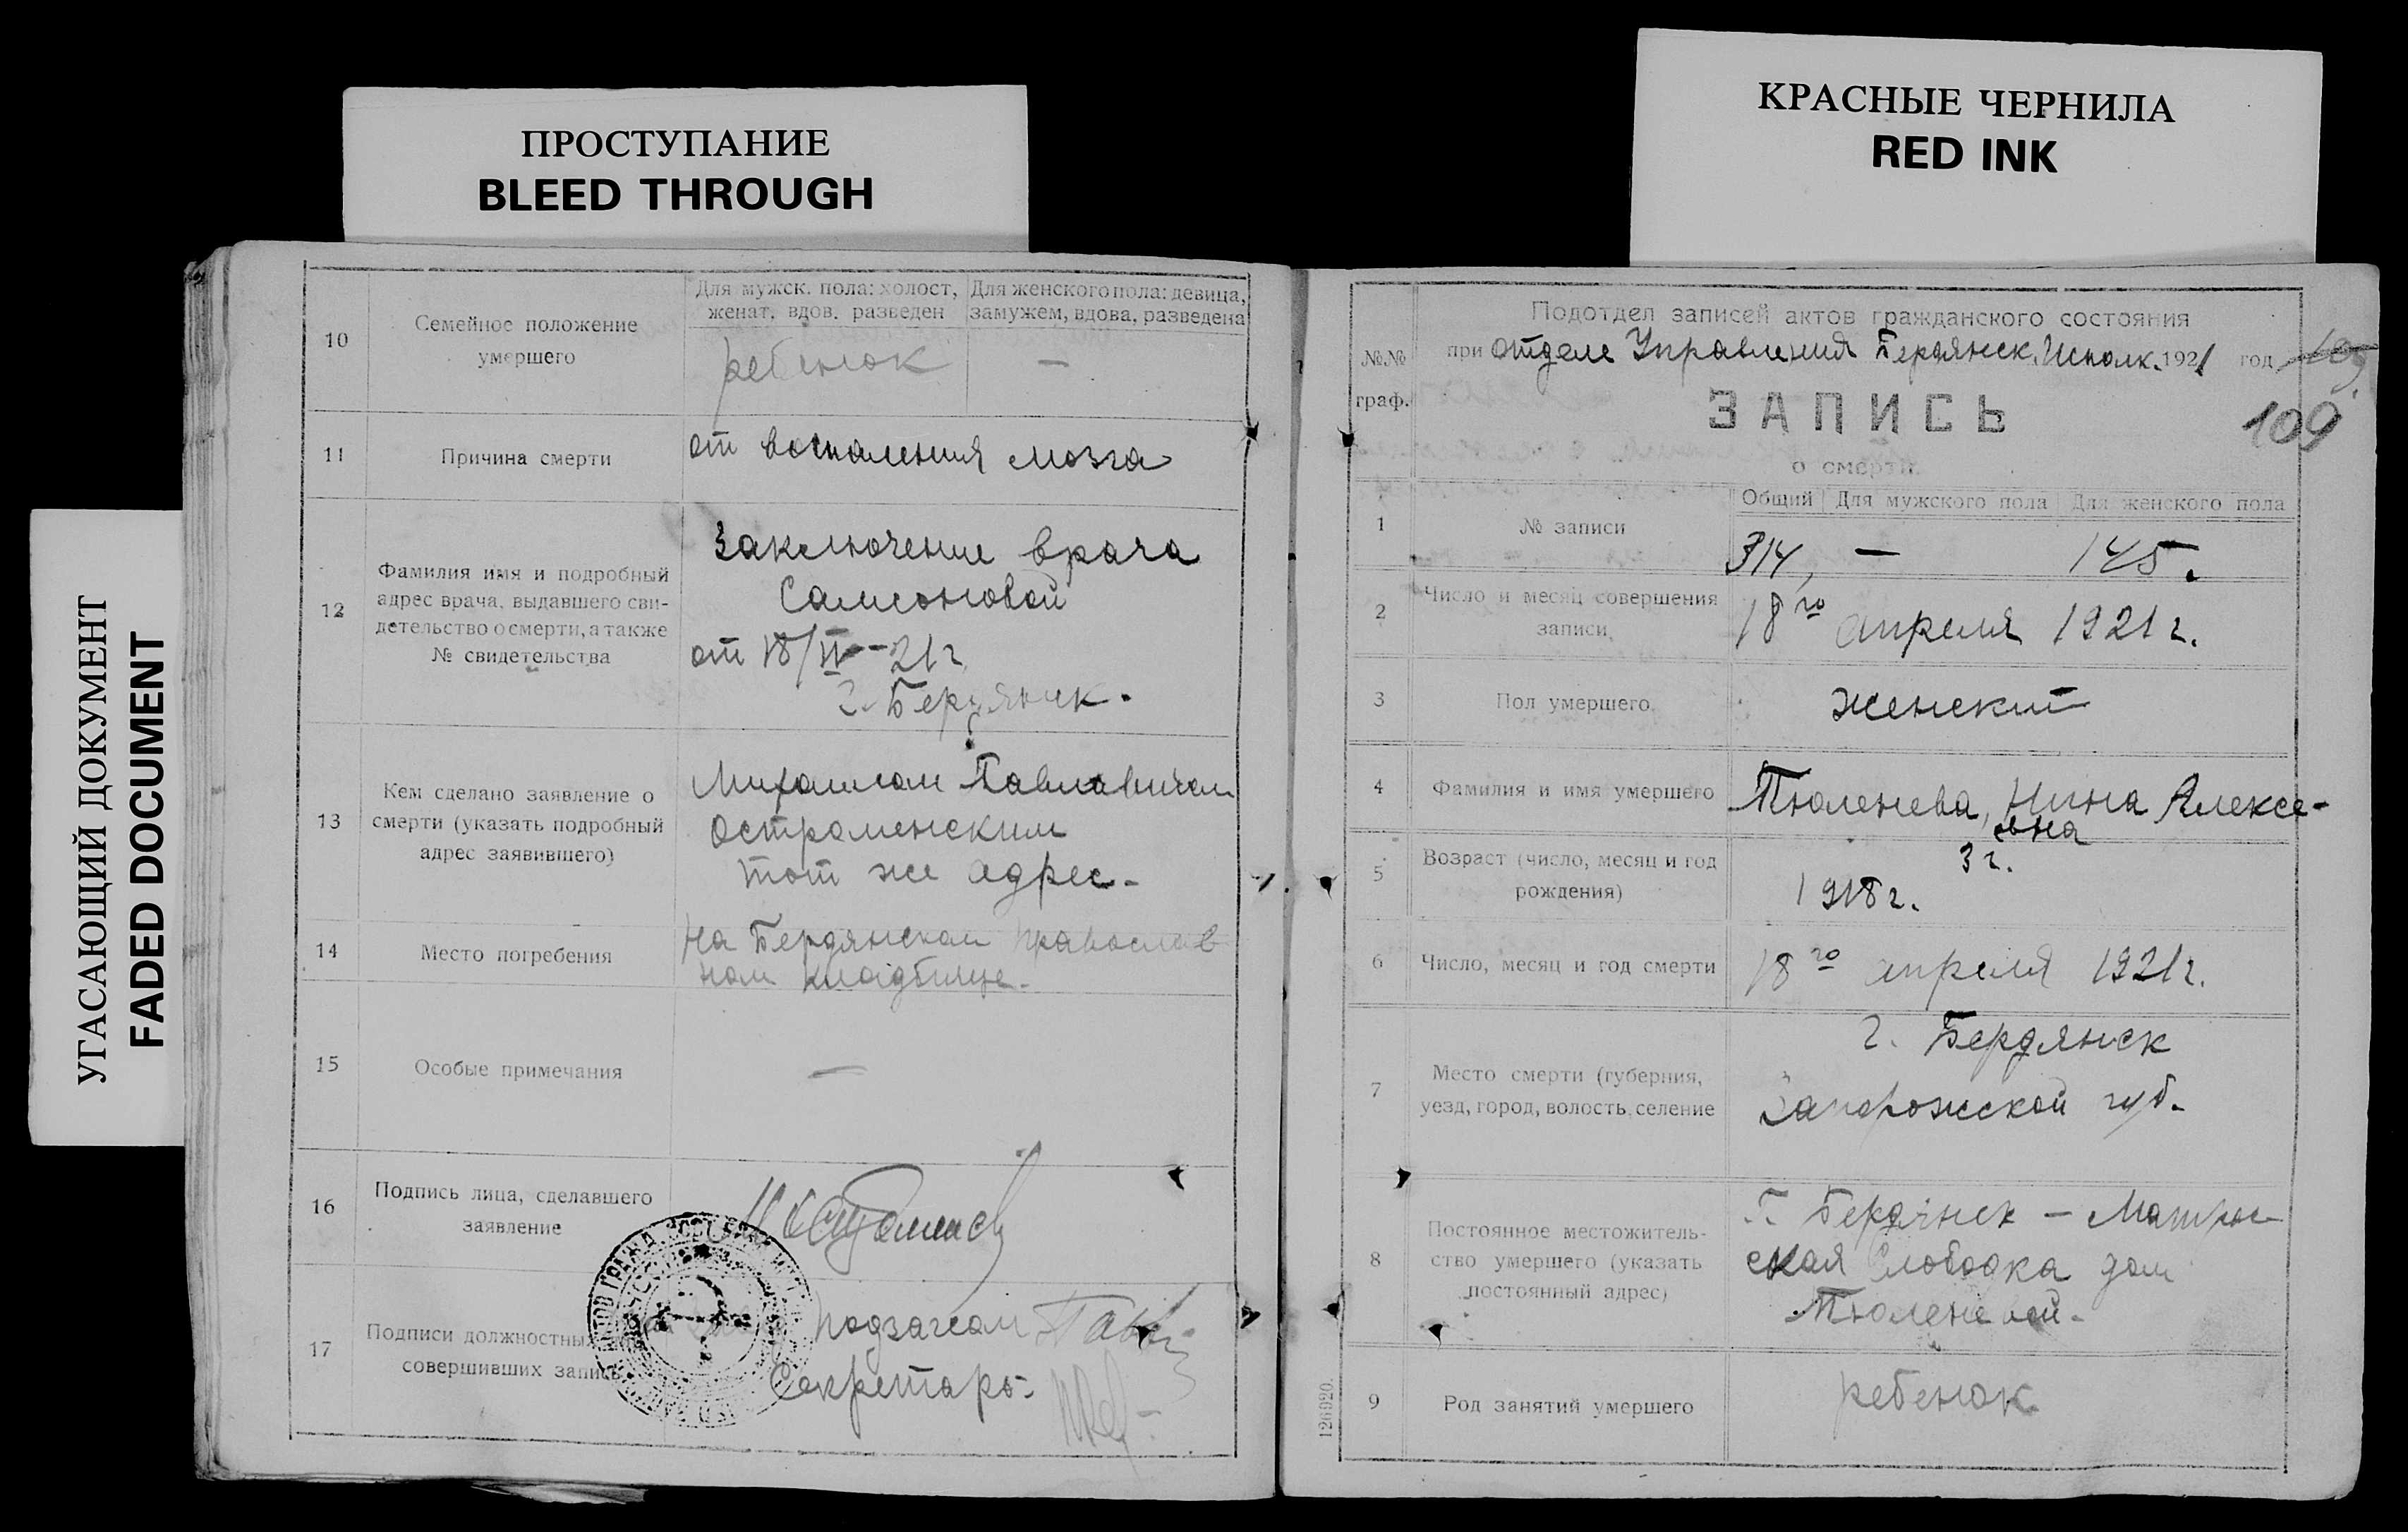 ПРОСТУПАНИЕ
BLEED THROUGH
КРАСНЫЕ ЧЕРНИЛА
RED INK
УГАСАЮЩИЙ ДОКУМЕНТ
FADED DOCUMENT
10
Семейное положение
умершего
Для мужск. пола: холост,
женат, вдов, разведен
Для женского пола: девица,
замужем, вдова, разведена
ребенок
—
11
Причина смерти
от воспаления мозга
12
Фамилия имя и подробный
адрес врача, выдавшего сви-
детельство о смерти, а также
№ свидетельства
Заключение врача
Самсоновой
от 18/IV-21 г.
г. Бердянск.
13
Кем сделано заявление о
смерти (указать подробный
адрес заявившего)
Михаилом Павловичом
Остроменским
тот же адрес-
14
Место погребения
На Бердянском православ
ном кладбище-
15
Особые примечания
—
16
Подпись лица, сделавшего
заявление
17
Подписи должностных
совершивших запись
подзагсом
Секретарь-
№№
граф.
Подотдел записей актов гражданского состояния
при отделе Управления Бердянск. Исполк. 1921 год
109
ЗАПИСЬ
о смерти
1
№ записи
Общий
Для мужского пола
Для женского пола
314,
—
145.
2
Число и месяц совершения
записи
18го апреля 1921 г.
3
Пол умершего
женский
4
Фамилия и имя умершего
Тюленева, Нина Алексе-
евна
5
Возраст (число, месяц и год
рождения)
3 г.
1918 г.
6
Число, месяц и год смерти
18го апреля 1921 г.
7
Место смерти (губерния,
уезд, город, волость, селение
г. Бердянск
Запорожской губ.
8
Постоянное местожитель-
ство умершего (указать
постоянный адрес)
Г. Бердянск — Матрос
ская Слободка дом
Тюленевой-
9
Род занятий умершего
ребенок
126920.